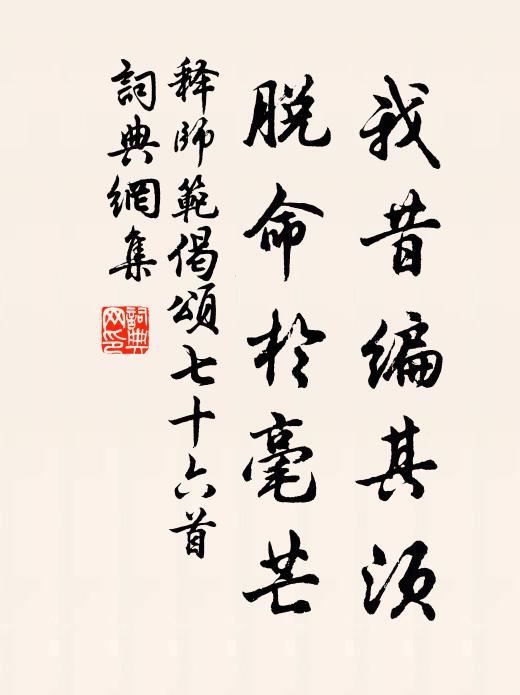 我昔编其须
脱命於毫芒
释师範偈颂七十六首
词典網集
詞典
网印